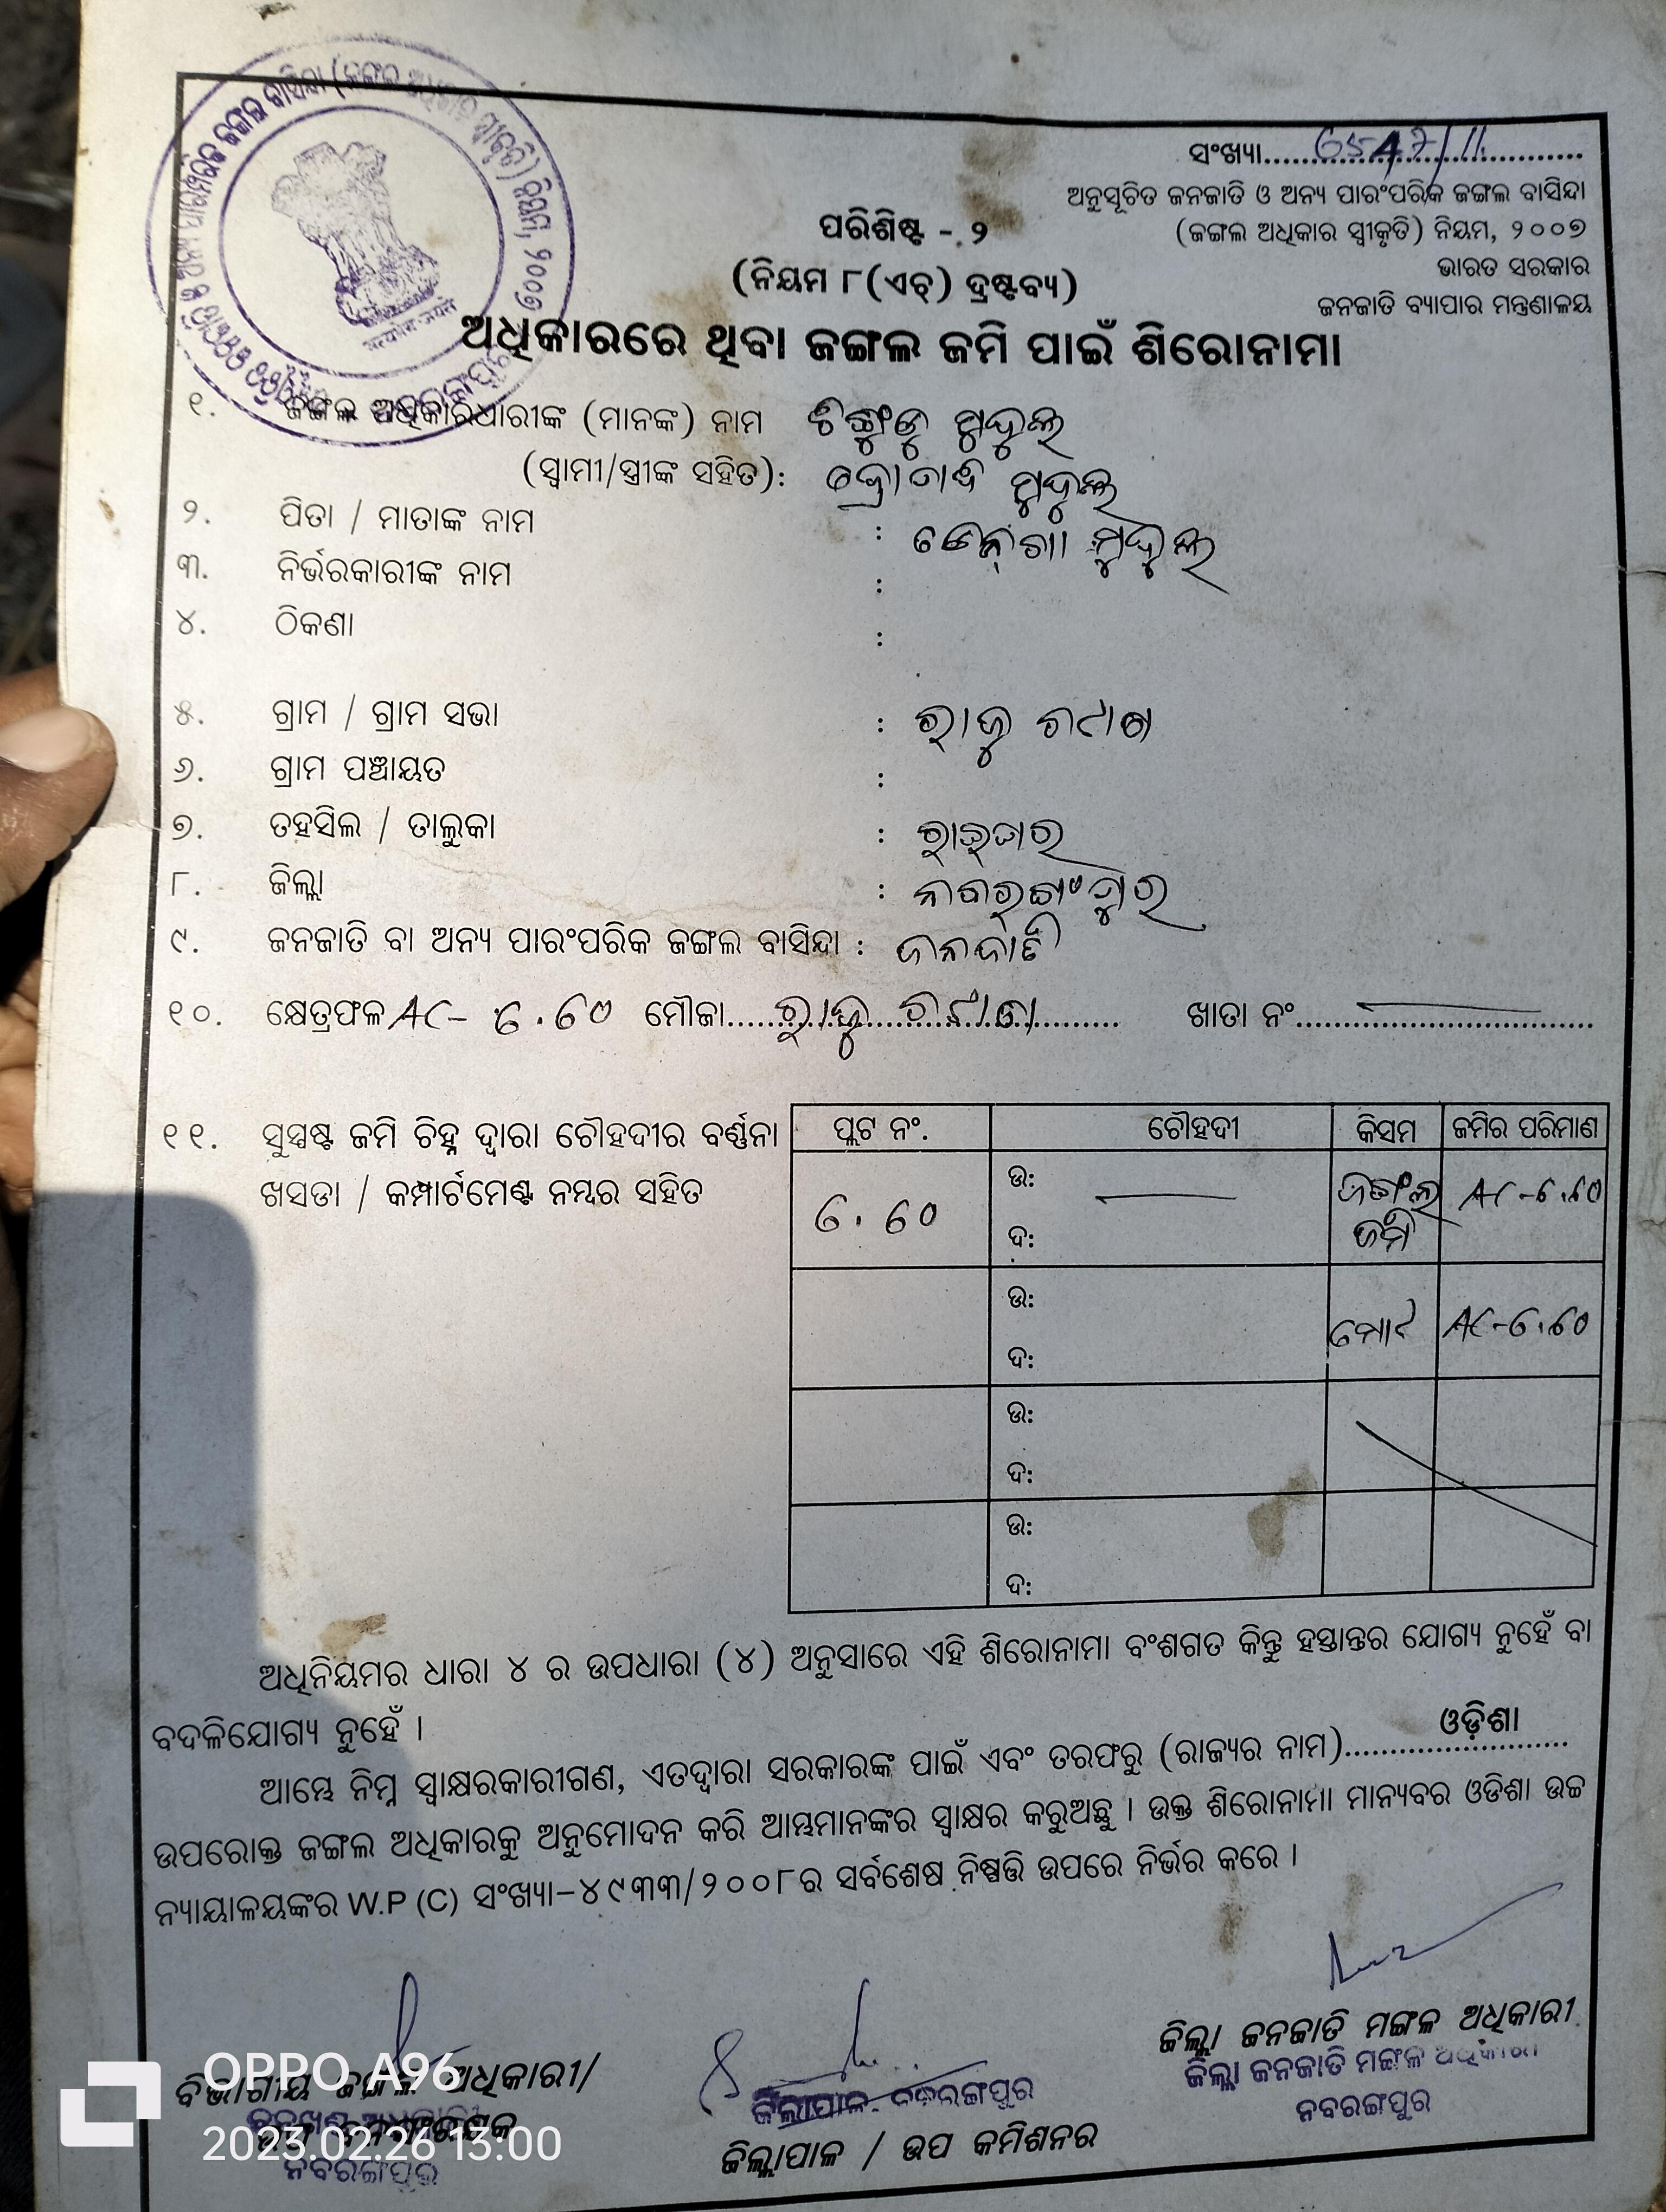 ସଂଖ୍ୟା
ଅନୁସୂଚିତ ଜନଜାତି ଓ ଅନ୍ୟ ପାରଂପରିକ ଜଙ୍ଗଲ ବାସିନ୍ଦା
(ଜଙ୍ଗଲ ଅଧିକାର ସ୍ୱୀକୃତି) ନିୟମ, ୨୦୦୭
ଭାରତ ସରକାର
ଜନଜାତି ବ୍ୟାପାର ମନ୍ତ୍ରଣାଳୟ
ପରିଶିଷ୍ଟ - ୨
(ନିୟମ ୮(ଏଚ୍) ଦ୍ରଷ୍ଟବ୍ୟ)
ଅଧିକାରରେ ଥିବା ଜଙ୍ଗଲ ଜମି ପାଇଁ ଶିରୋନାମା
୧. ଜଙ୍ଗଲ ଅଧିକାରଧାରୀଙ୍କ (ମାନଙ୍କ) ନାମ
(ସ୍ୱାମୀ/ସ୍ତ୍ରୀଙ୍କ ସହିତ):
୨. ପିତା / ମାତାଙ୍କ ନାମ :
୩. ନିର୍ଭରକାରୀଙ୍କ ନାମ :
୪. ଠିକଣା :
୫. ଗ୍ରାମ / ଗ୍ରାମ ସଭା :
୬. ଗ୍ରାମ ପଞ୍ଚାୟତ :
୭. ତହସିଲ / ତାଲୁକା : ରାଇଘର
୮. ଜିଲ୍ଲା : ନବରଙ୍ଗପୁର
୯. ଜନଜାତି ବା ଅନ୍ୟ ପାରଂପରିକ ଜଙ୍ଗଲ ବାସିନ୍ଦା : ଜନଜାତି
୧୦. କ୍ଷେତ୍ରଫଳ AC- 6.60 ମୌଜା ଖାତା ନଂ
୧୧. ସୁସ୍ପଷ୍ଟ ଜମି ଚିହ୍ନ ଦ୍ୱାରା ଚୌହଦୀର ବର୍ଣ୍ଣନା
ଖସଡା / କମ୍ପାର୍ଟମେଣ୍ଟ ନମ୍ବର ସହିତ
ପ୍ଲଟ ନଂ. ଚୌହଦୀ କିସମ ଜମିର ପରିମାଣ
6.60 ଉ: ଦ: ଜଙ୍ଗଲ ଜମି AC-6.60
ଉ: ଦ: ମୋଟ AC-6.60
ଉ:
ଦ:
ଉ:
ଦ:
ଅଧିନିୟମର ଧାରା ୪ ର ଉପଧାରା (୪) ଅନୁସାରେ ଏହି ଶିରୋନାମା ବଂଶଗତ କିନ୍ତୁ ହସ୍ତାନ୍ତର ଯୋଗ୍ୟ ନୁହେଁ ବା
ବଦଳିଯୋଗ୍ୟ ନୁହେଁ ।
ଆମ୍ଭେ ନିମ୍ନ ସ୍ୱାକ୍ଷରକାରୀଗଣ, ଏତଦ୍ୱାରା ସରକାରଙ୍କ ପାଇଁ ଏବଂ ତରଫରୁ (ରାଜ୍ୟର ନାମ) ଓଡ଼ିଶା
ଉପରୋକ୍ତ ଜଙ୍ଗଲ ଅଧିକାରକୁ ଅନୁମୋଦନ କରି ଆମ୍ଭମାନଙ୍କର ସ୍ୱାକ୍ଷର କରୁଅଛୁ । ଉକ୍ତ ଶିରୋନାମା ମାନ୍ୟବର ଓଡିଶା ଉଚ୍ଚ
ନ୍ୟାୟାଳୟଙ୍କର W.P (C) ସଂଖ୍ୟା-୪୯୩୩/୨୦୦୮ର ସର୍ବଶେଷ ନିଷ୍ପତ୍ତି ଉପରେ ନିର୍ଭର କରେ ।
ଜିଲ୍ଲା ଜନଜାତି ମଙ୍ଗଳ ଅଧିକାରୀ
ଜିଲ୍ଲା ଜନଜାତି ମଙ୍ଗଳ ଅଧିକାରୀ
ନବରଙ୍ଗପୁର
ବିଭାଗୀୟ ଜଙ୍ଗଲ ଅଧିକାରୀ/
ନବରଙ୍ଗପୁର
ଜିଲ୍ଲାପାଳ ନବରଙ୍ଗପୁର
ଜିଲ୍ଲାପାଳ / ଉପ କମିଶନର
OPPO A96
2023.02.26 13:00